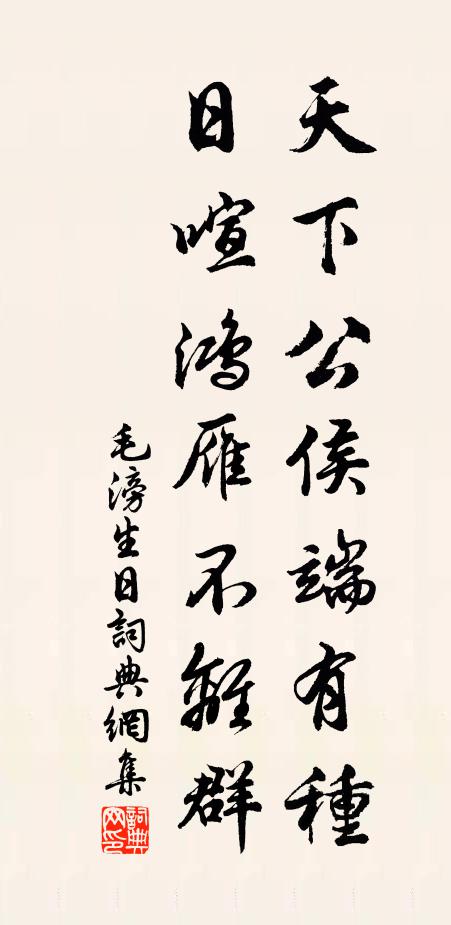 天下公侯端有種
日喧鴻雁不離群
毛滂生日詞典網集
詞典網印